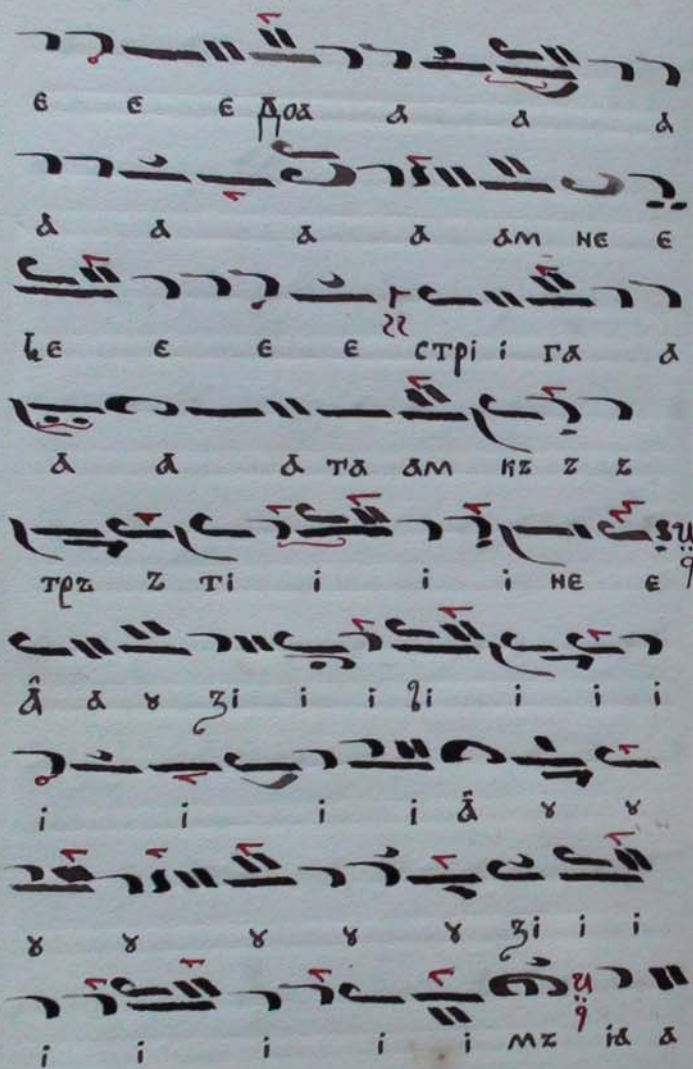 є є є Доа а а а
а а а а ам нє є
є є є стрі і га а
а а а та ам къ ъ ъ
тръ ъ ті і і і нє є
А̂ а ꙋ зі і і ві і і і
і і і і А̂ ꙋ ꙋ
ꙋ ꙋ ꙋ ꙋ ꙋ зі і і
і і і і і мъ іа а